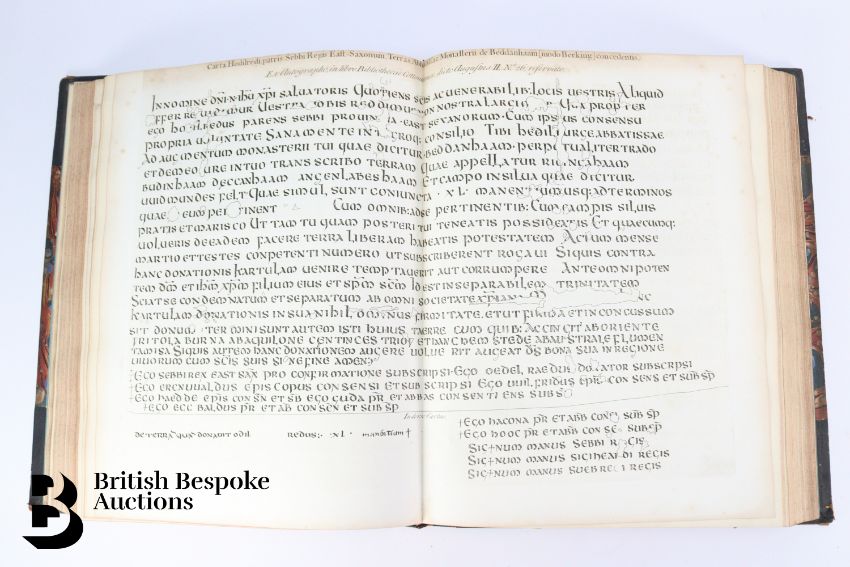 Carta Hodilredi, patris Sebbi Regis East-Saxonum, Terras Monasterii de Beddanhaam [modo Berking] concedentis.
Ex Autographo, in libro Bibliothecae Augustus II. No. 26. reservato.
IN NOMINE DNI NRI IHU XPI SALUATORIS QUOTIENS SCIS AC UENERABILIB LOCIS UESTRIS ALIQUID
OFFERRE UESTRA UOBIS REDDIMUS NON NOSTRA QUA PROPTER
EGO HODILREDUS PARENS SEBBI PROUINCIA EAST SEXANORUM CUM IPSIUS CONSENSU
PROPRIA UOLUNTATE SANA MENTE INTEGROQ: CONSILIO TIBI HEDILBURGE ABBATISSAE
AD AUGMENTUM MONASTERII TUI QUAE DICITUR BEDDANHAAM PERPETUALITER TRADO
ET DE MEO IURE IN TUO TRANSCRIBO TERRAM QUAE APPELLATUR RICINGAHAAM
BUDINHAAM DECCANHAAM ANGENLABESHAAM ET CAMPO IN SILUA QUAE DICITUR
UUIDMUNDES FELT QUAE SIMUL SUNT CONIUNCTA XL MANENTIUM USQ: AD TERMINOS
QUAE AD EUM PERTINENT CUM OMNIBUS AD SE PERTINENTIB: CUM CAMPIS SILUIS
PRATIS ET MARISCO UT TAM TU QUAM POSTERI TUI TENEATIS POSSIDEATIS ET QUAECUMQ:
UOLUERIS DE EADEM FACERE TERRA LIBERAM HABEATIS POTESTATEM ACTUM MENSE
MARTIO ET TESTES COMPETENTI NUMERO UT SUBSCRIBERENT ROGAUI SIQUIS CONTRA
HANC DONATIONIS KARTULAM UENIRE TEMPTAUERIT AUT CORRUMPERE ANTE OMNIPOTEN
TEM DM ET IHM XPM FILIUM EIUS ET SPM SCM ID EST INSEPARABILEM TRINITATEM
SCIAT SE CONDEMNATUM ET SEPARATUM AB OMNI SOCIETATE XPIANA
KARTULAM DONATIONIS IN SUA NIHILOMINUS FIRMITATE ET UT FIRMA ET INCONCUSSUM
SIT DONUM TERMINI SUNT AUTEM ISTI HUIUS TERRE CUM QUIB: ACCINGIT AB ORIENTE
WRITOLABURNA AB AQUILONE CENTINCES TRIOW ET HANCHEMSTEDE AB AUSTRALE FLUMEN
TAMISA SIQUIS AUTEM HANC DONATIONEM AUGERE UOLUERIT AUGEAT DS BONA SUA IN REGIONE
UIUORUM CUM SCIS SUIS SINE FINE AMEN
†EGO SEBBI REX EAST SAX PRO CONFIRMATIONE SUBSCRIPSI EGO OEDELRAEDUS DONATOR SUBSCRIPSI
†EGO ERCNUUALDUS EPISCOPUS CONSENSI ET SUBSCRIPSI EGO UUILFRIDUS EPIC CONSENS ET SUBSP
†EGO HAEDDE EPIS CONSN ET SB EGO GUDA PR ET ABBAS CONSENTIENS SUBS
†EGO EGCBALDUS PR ET AB CONSEN ET SUB SP
In dorso Cartae.
DE TERRA QUAM DONAUIT ODIL REDUS: XL manentium †
†EGO HACONA PR ET ABB CONS SUB SP
†EGO HOOC PR ET ABB CONSE SUBSP
SIGNUM MANUS SEBBI REGIS
SIGNUM MANUS SIGIHEARDI REGIS
SIGNUM MANUS SUEBREDI REGIS
British Bespoke
Auctions